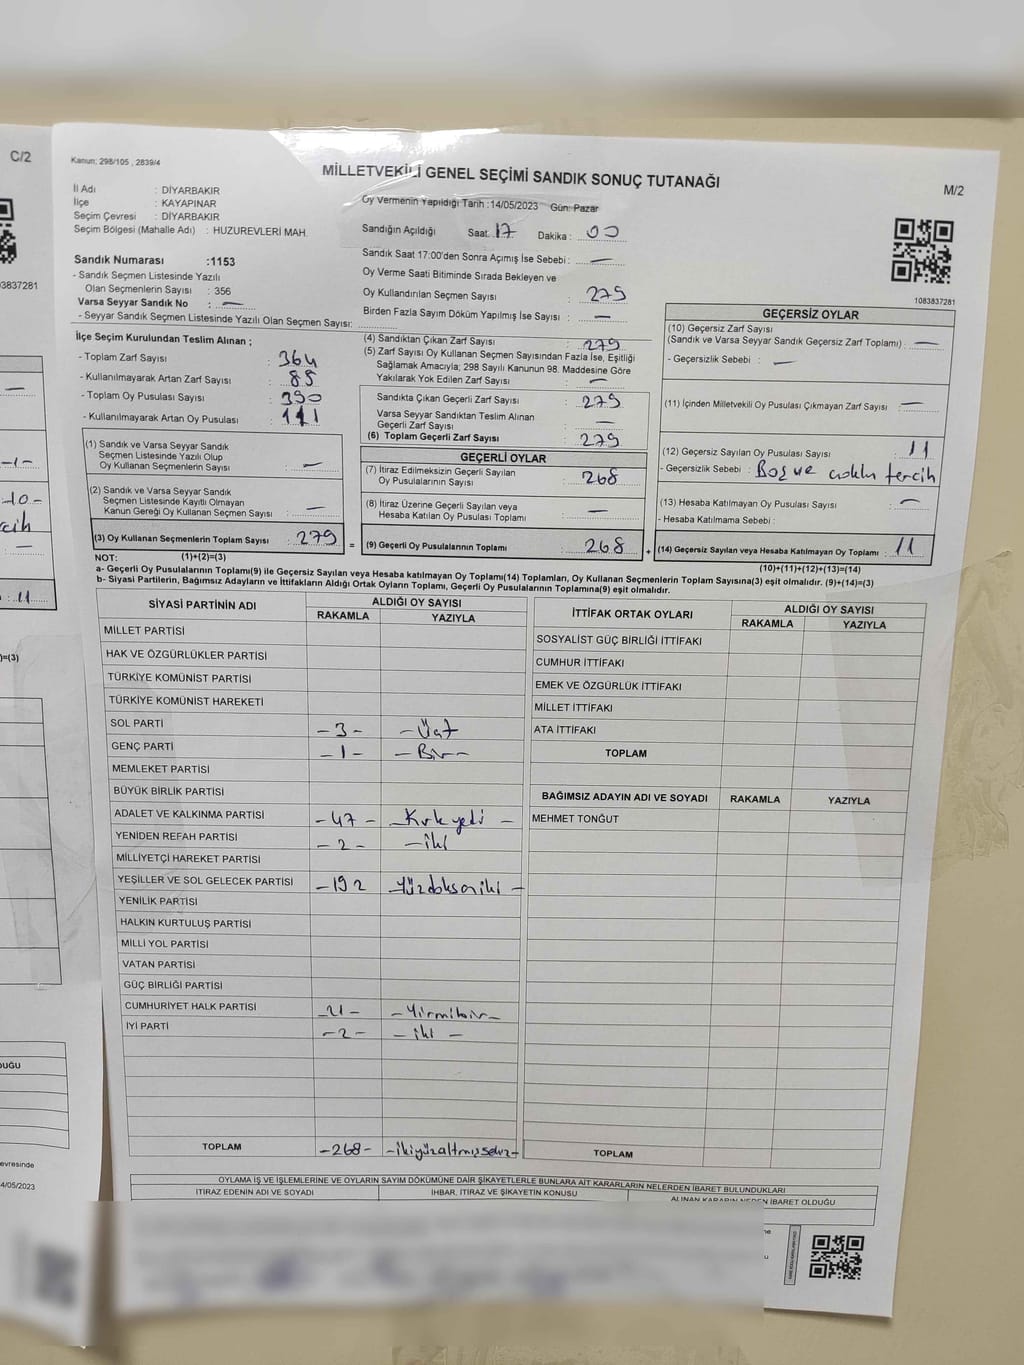 C/2
Kanun: 298/105 , 2839/4
MİLLETVEKİLİ GENEL SEÇİMİ SANDIK SONUÇ TUTANAĞI
M/2
İl Adı : DİYARBAKIR
İlçe : KAYAPINAR
Seçim Çevresi : DİYARBAKIR
Seçim Bölgesi (Mahalle Adı) : HUZUREVLERİ MAH.
Sandık Numarası :1153
- Sandık Seçmen Listesinde Yazılı
Olan Seçmenlerin Sayısı : 356
Varsa Seyyar Sandık No : —
- Seyyar Sandık Seçmen Listesinde Yazılı Olan Seçmen Sayısı:
Oy Vermenin Yapıldığı Tarih :14/05/2023 Gün: Pazar
Sandığın Açıldığı Saat: 17 Dakika : 00
Sandık Saat 17:00'den Sonra Açımış İse Sebebi : —
Oy Verme Saati Bitiminde Sırada Bekleyen ve
Oy Kullandırılan Seçmen Sayısı : 279
Birden Fazla Sayım Döküm Yapılmış İse Sayısı : —
1083837281
İlçe Seçim Kurulundan Teslim Alınan ;
- Toplam Zarf Sayısı : 364
- Kullanılmayarak Artan Zarf Sayısı : 85
- Toplam Oy Pusulası Sayısı : 390
- Kullanılmayarak Artan Oy Pusulası : 111
(1) Sandık ve Varsa Seyyar Sandık
Seçmen Listesinde Yazılı Olup
Oy Kullanan Seçmenlerin Sayısı : —
(2) Sandık ve Varsa Seyyar Sandık
Seçmen Listesinde Kayıtlı Olmayan
Kanun Gereği Oy Kullanan Seçmen Sayısı : —
(3) Oy Kullanan Seçmenlerin Toplam Sayısı : 279
(4) Sandıktan Çıkan Zarf Sayısı : 279
(5) Zarf Sayısı Oy Kullanan Seçmen Sayısından Fazla İse, Eşitliği
Sağlamak Amacıyla; 298 Sayılı Kanunun 98. Maddesine Göre
Yakılarak Yok Edilen Zarf Sayısı : —
Sandıkta Çıkan Geçerli Zarf Sayısı : 279
Varsa Seyyar Sandıktan Teslim Alınan
Geçerli Zarf Sayısı : —
(6) Toplam Geçerli Zarf Sayısı : 279
GEÇERLİ OYLAR
(7) İtiraz Edilmeksizin Geçerli Sayılan
Oy Pusulalarının Sayısı : 268
(8) İtiraz Üzerine Geçerli Sayılan veya
Hesaba Katılan Oy Pusulası Toplamı : —
= (9) Geçerli Oy Pusulalarının Toplamı : 268
GEÇERSİZ OYLAR
(10) Geçersiz Zarf Sayısı
(Sandık ve Varsa Seyyar Sandık Geçersiz Zarf Toplamı) : —
- Geçersizlik Sebebi : —
(11) İçinden Milletvekili Oy Pusulası Çıkmayan Zarf Sayısı : —
(12) Geçersiz Sayılan Oy Pusulası Sayısı : 11
- Geçersizlik Sebebi : Boş ve çoklu tercih
(13) Hesaba Katılmayan Oy Pusulası Sayısı : —
- Hesaba Katılmama Sebebi :
+ (14) Geçersiz Sayılan veya Hesaba Katılmayan Oy Toplamı : 11
NOT: (1)+(2)=(3)
(10)+(11)+(12)+(13)=(14)
a- Geçerli Oy Pusulalarının Toplamı(9) ile Geçersiz Sayılan veya Hesaba katılmayan Oy Toplamı(14) Toplamları, Oy Kullanan Seçmenlerin Toplam Sayısına(3) eşit olmalıdır. (9)+(14)=(3)
b- Siyasi Partilerin, Bağımsız Adayların ve İttifakların Aldığı Ortak Oyların Toplamı, Geçerli Oy Pusulalarının Toplamına(9) eşit olmalıdır.
SİYASİ PARTİNİN ADI
ALDIĞI OY SAYISI
RAKAMLA YAZIYLA
MİLLET PARTİSİ
HAK VE ÖZGÜRLÜKLER PARTİSİ
TÜRKİYE KOMÜNİST PARTİSİ
TÜRKİYE KOMÜNİST HAREKETİ
SOL PARTİ -3- -Üç
GENÇ PARTİ -1- -Bir-
MEMLEKET PARTİSİ
BÜYÜK BİRLİK PARTİSİ
ADALET VE KALKINMA PARTİSİ -47- -Kırkyedi-
YENİDEN REFAH PARTİSİ -2- -iki
MİLLİYETÇİ HAREKET PARTİSİ
YEŞİLLER VE SOL GELECEK PARTİSİ -192 Yüzdoksaniki-
YENİLİK PARTİSİ
HALKIN KURTULUŞ PARTİSİ
MİLLİ YOL PARTİSİ
VATAN PARTİSİ
GÜÇ BİRLİĞİ PARTİSİ
CUMHURİYET HALK PARTİSİ -21- -Yirmibir-
İYİ PARTİ -2- -iki-
TOPLAM -268- -ikiyüzaltmışsekiz-
İTTİFAK ORTAK OYLARI
ALDIĞI OY SAYISI
RAKAMLA YAZIYLA
SOSYALİST GÜÇ BİRLİĞİ İTTİFAKI
CUMHUR İTTİFAKI
EMEK VE ÖZGÜRLÜK İTTİFAKI
MİLLET İTTİFAKI
ATA İTTİFAKI
TOPLAM
BAĞIMSIZ ADAYIN ADI VE SOYADI RAKAMLA YAZIYLA
MEHMET TONĞUT
TOPLAM
OYLAMA İŞ VE İŞLEMLERİNE VE OYLARIN SAYIM DÖKÜMÜNE DAİR ŞİKAYETLERLE BUNLARA AİT KARARLARIN NELERDEN İBARET BULUNDUKLARI
İTİRAZ EDENİN ADI VE SOYADI
İHBAR, İTİRAZ VE ŞİKAYETİN KONUSU
ALINAN KARARIN NEDEN İBARET OLDUĞU
3837281
-1-
-10-
: 11
)=(3)
DUĞU
evresinde
4/05/2023